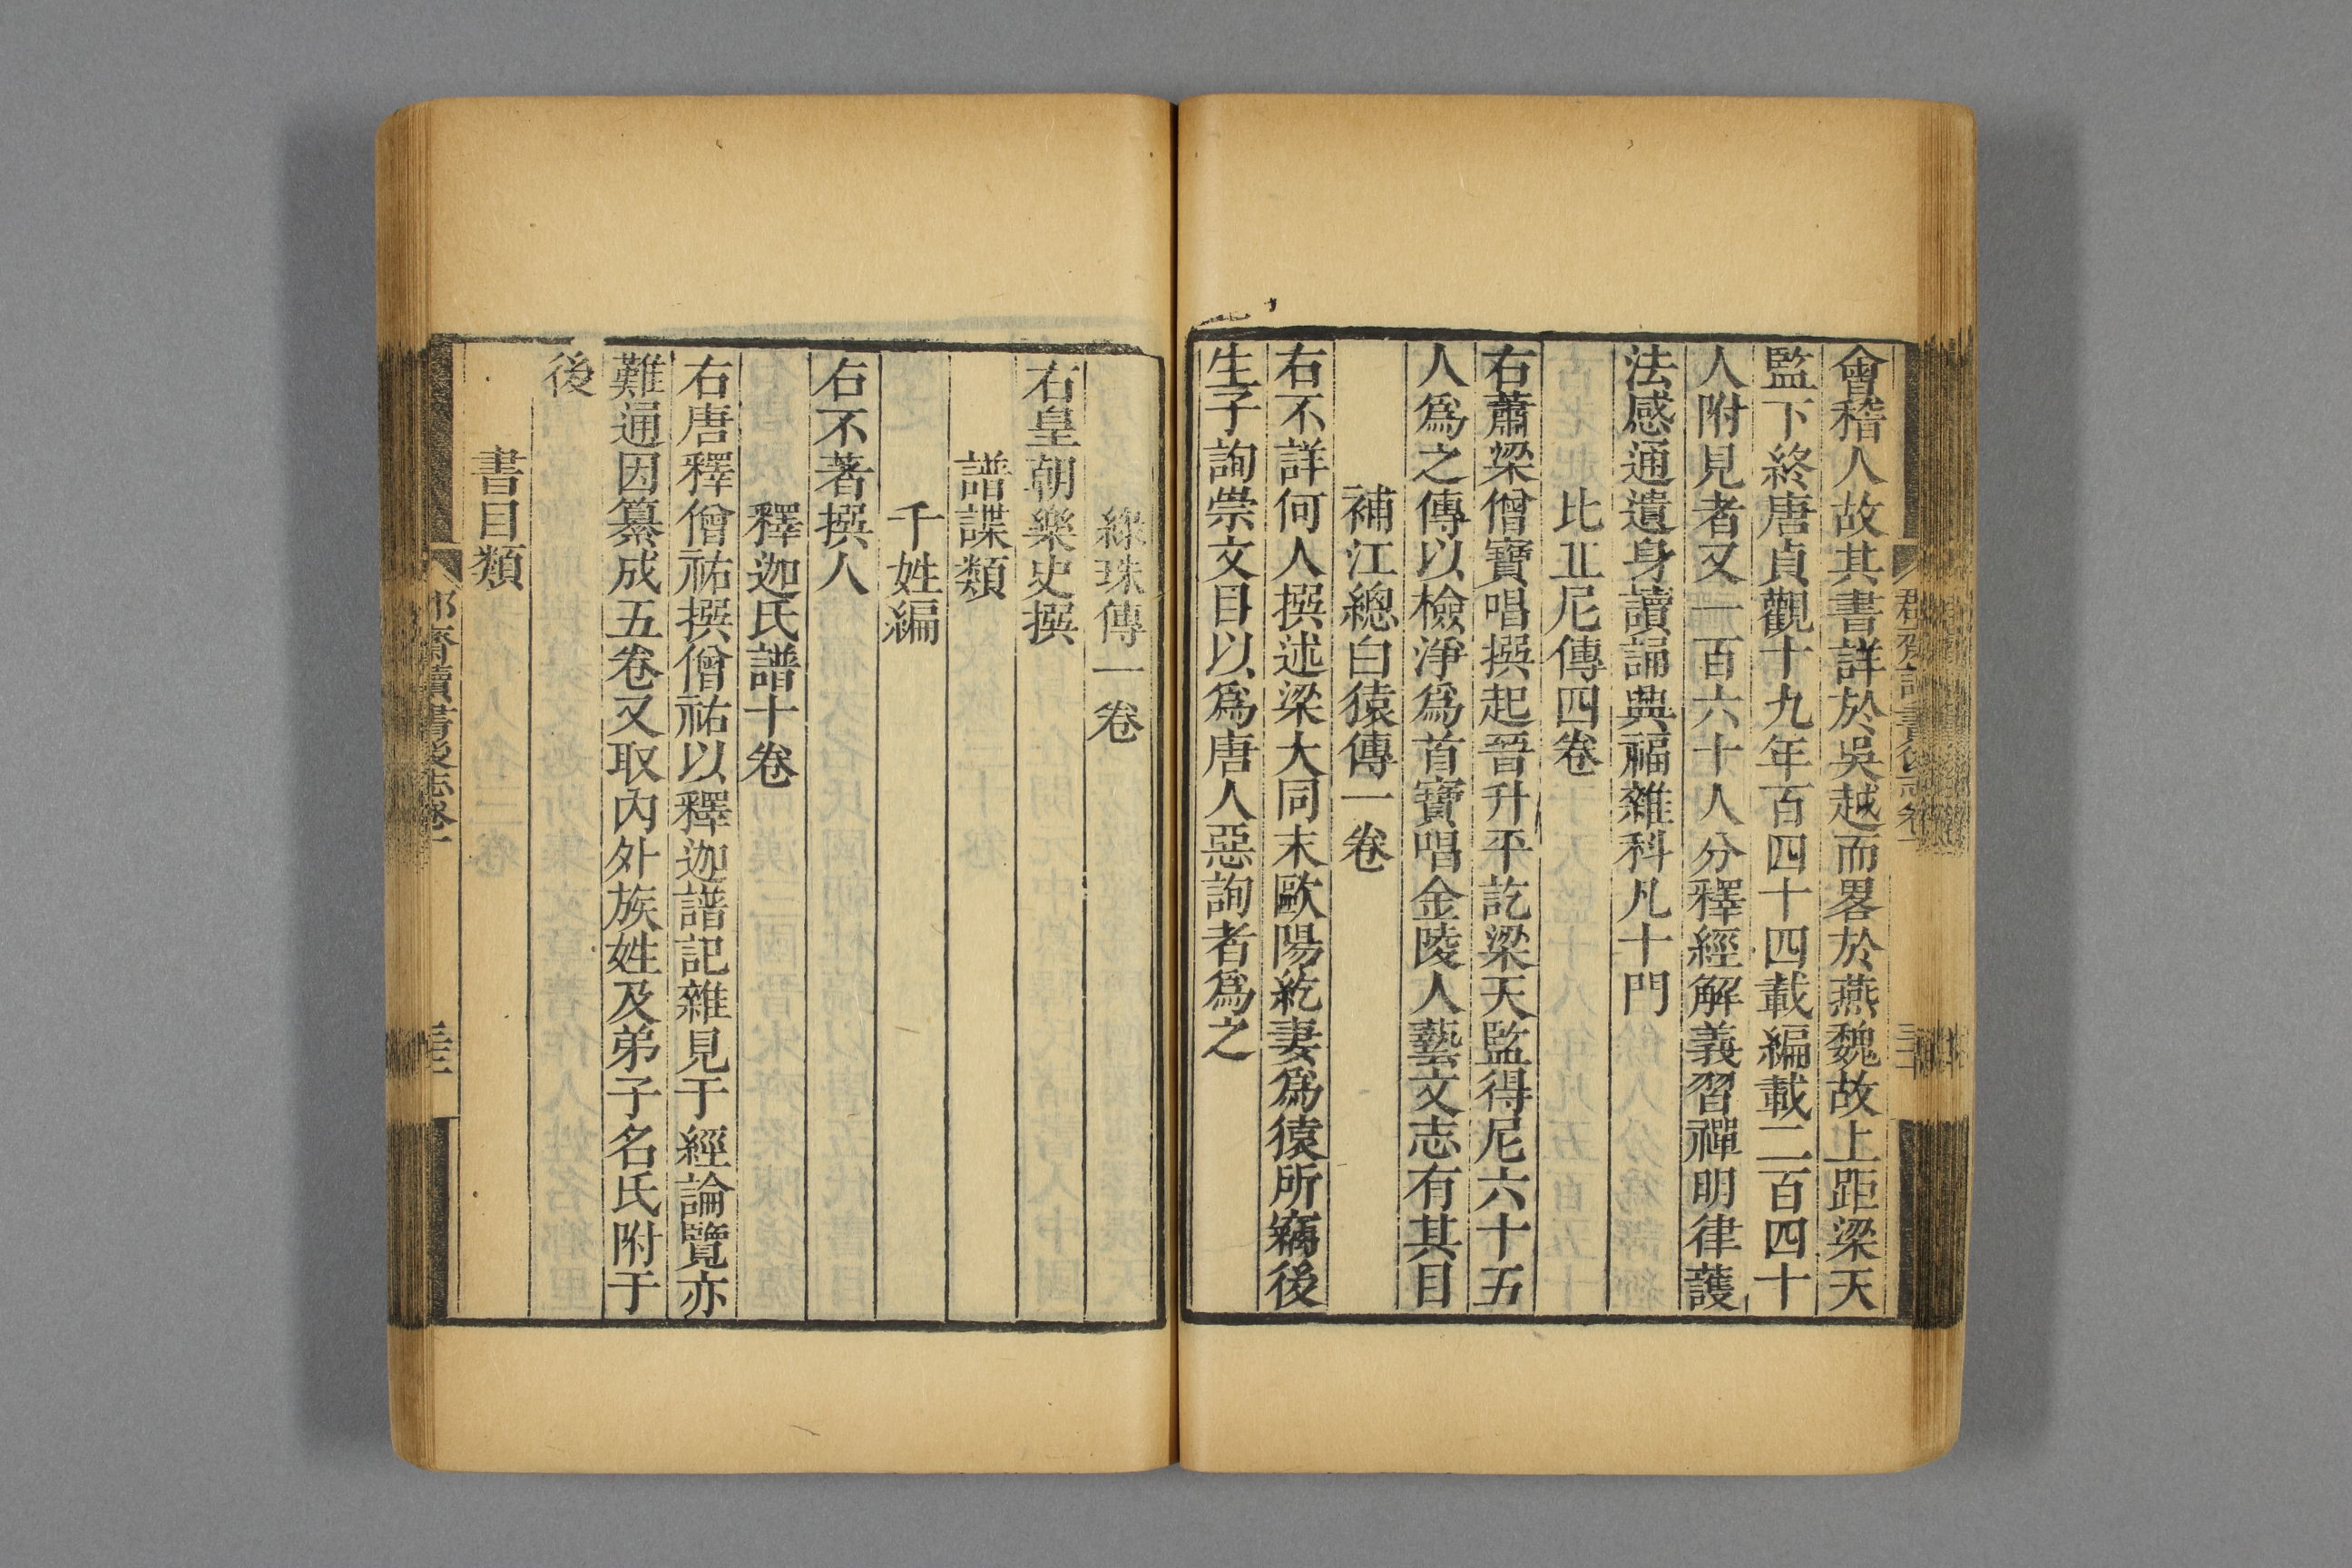 會稽人故其書詳於吳越而畧於燕魏故上距梁天
監下終唐貞觀十九年百四十四載編載二百四十
人附見者又一百六十人分釋經解義習禪明律護
法感通遺身讀誦典福雜科凡十門
比丘尼傳四卷
右蕭梁僧寶唱撰起晉升平訖梁天監得尼六十五
人爲之傳以檢淨爲首寶唱金陵人藝文志有其目
補江總白猿傳一卷
右不詳何人撰述梁大同末歐陽紇妻爲猿所竊後
生子詢崇文目以爲唐人惡詢者爲之
綠珠傳一卷
右皇朝樂史撰
譜諜類
千姓編
右不著撰人
釋迦氏譜十卷
右唐釋僧祐撰僧祐以釋迦譜記雜見于經論覽亦
難通因纂成五卷又取內外族姓及弟子名氏附于
後
書目類
郡齋讀書後志卷一